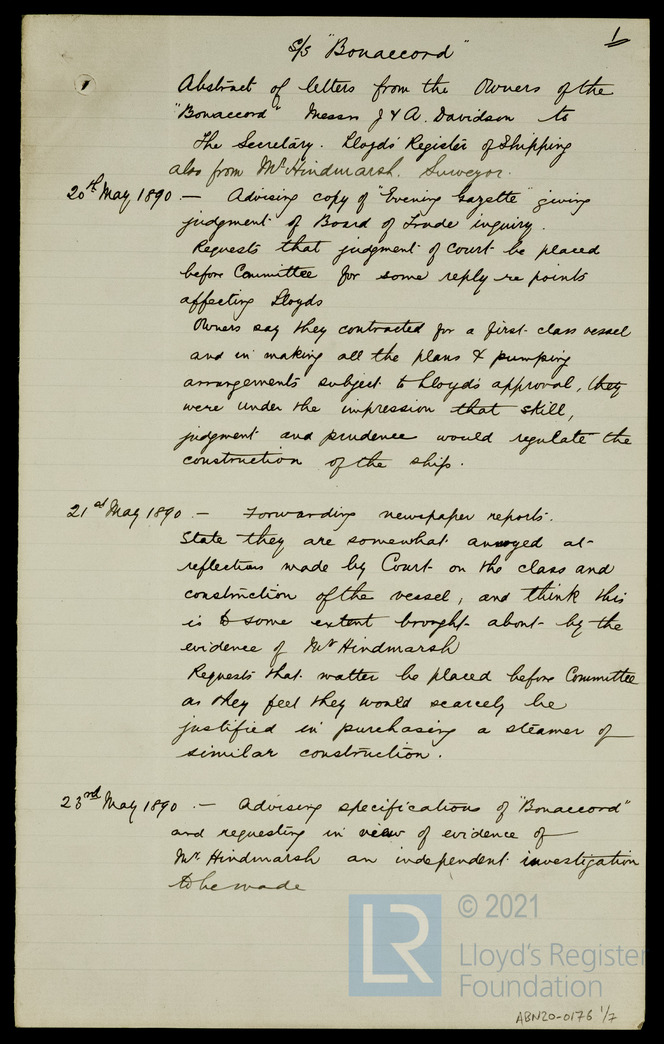 1
S/S "Bonaccord"
1
Abstract of letters from the Owners of the
"Bonaccord" Messrs J & A. Davidson to
The Secretary. Lloyds Register of Shipping
also from Mr Hindmarsh. Surveyor.
20th May 1890 — Advising copy of "Evening Gazette" giving
judgment of Board of Trade inquiry.
Requests that judgment of Court be placed
before Committee for some reply re points
affecting Lloyds
Owners say they contracted for a first-class vessel
and in making all the plans & pumping
arrangements subject to Lloyds approval, they
were under the impression that skill,
judgment and prudence would regulate the
construction of the ship.
21st May 1890 — Forwarding newspaper reports.
State they are somewhat annoyed at
reflections made by Court on the class and
construction of the vessel, and think this
is to some extent brought about by the
evidence of Mr Hindmarsh
Requests that matter be placed before Committee
as they feel they would scarcely be
justified in purchasing a steamer of
similar construction.
23rd May 1890 — Advising specifications of "Bonaccord"
and requesting in view of evidence of
Mr Hindmarsh an independent investigation
to be made
LR
© 2021
Lloyd's Register
Foundation
ABN20-0176 1/7